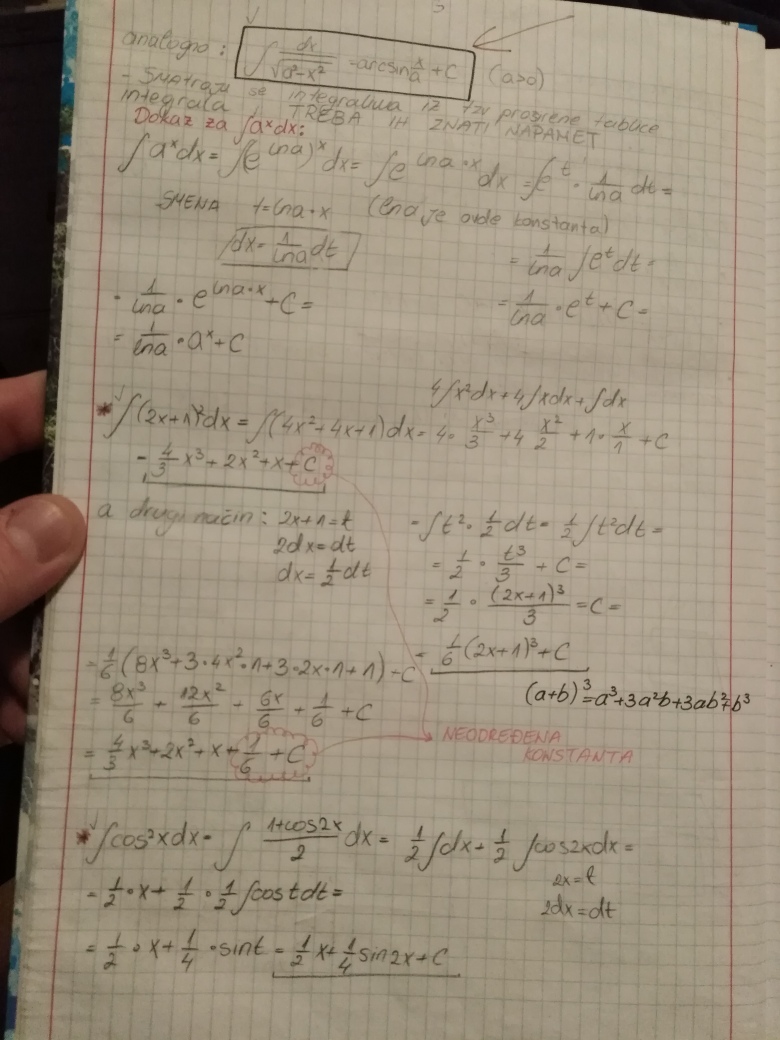 analogno : ∫ dx/√(a²-x²) = arcsin x/a + C (a>0)
- SMATRAJU se integralima iz tzv proširene tablice
integrala ! TREBA IH ZNATI NAPAMET
Dokaz za ∫aˣdx:
∫aˣdx = ∫(e^(lna))^x dx = ∫e^(lna·x) dx = ∫e^t · 1/lna dt =
SMENA t=lna·x (lna je ovde konstanta)
dx = 1/lna dt
= 1/lna ∫e^t dt =
= 1/lna · e^t + C =
= 1/lna · e^(lna·x) + C =
= 1/lna · aˣ + C
4∫x²dx+4∫xdx+∫dx
* ∫(2x+1)²dx = ∫(4x²+4x+1)dx = 4· x³/3 + 4 x²/2 + 1· x/1 + C
= 4/3 x³ + 2x² + x + C
a drugi način : 2x+1=t
2dx=dt
dx = 1/2 dt
= ∫t² · 1/2 dt = 1/2 ∫t²dt =
= 1/2 · t³/3 + C =
= 1/2 · (2x+1)³/3 = C =
= 1/6 (2x+1)³ + C
= 1/6 (8x³+3·4x²·1+3·2x·1+1) + C
(a+b)³=a³+3a²b+3ab²+b³
= 8x³/6 + 12x²/6 + 6x/6 + 1/6 + C
= 4/3 x³ + 2x² + x + 1/6 + C
NEODREĐENA
KONSTANTA
* ∫cos²xdx = ∫ (1+cos2x)/2 dx = 1/2 ∫dx + 1/2 ∫cos2xdx =
2x=t
2dx=dt
= 1/2 · x + 1/2 · 1/2 ∫costdt =
= 1/2 · x + 1/4 · sint = 1/2 x + 1/4 sin2x + C